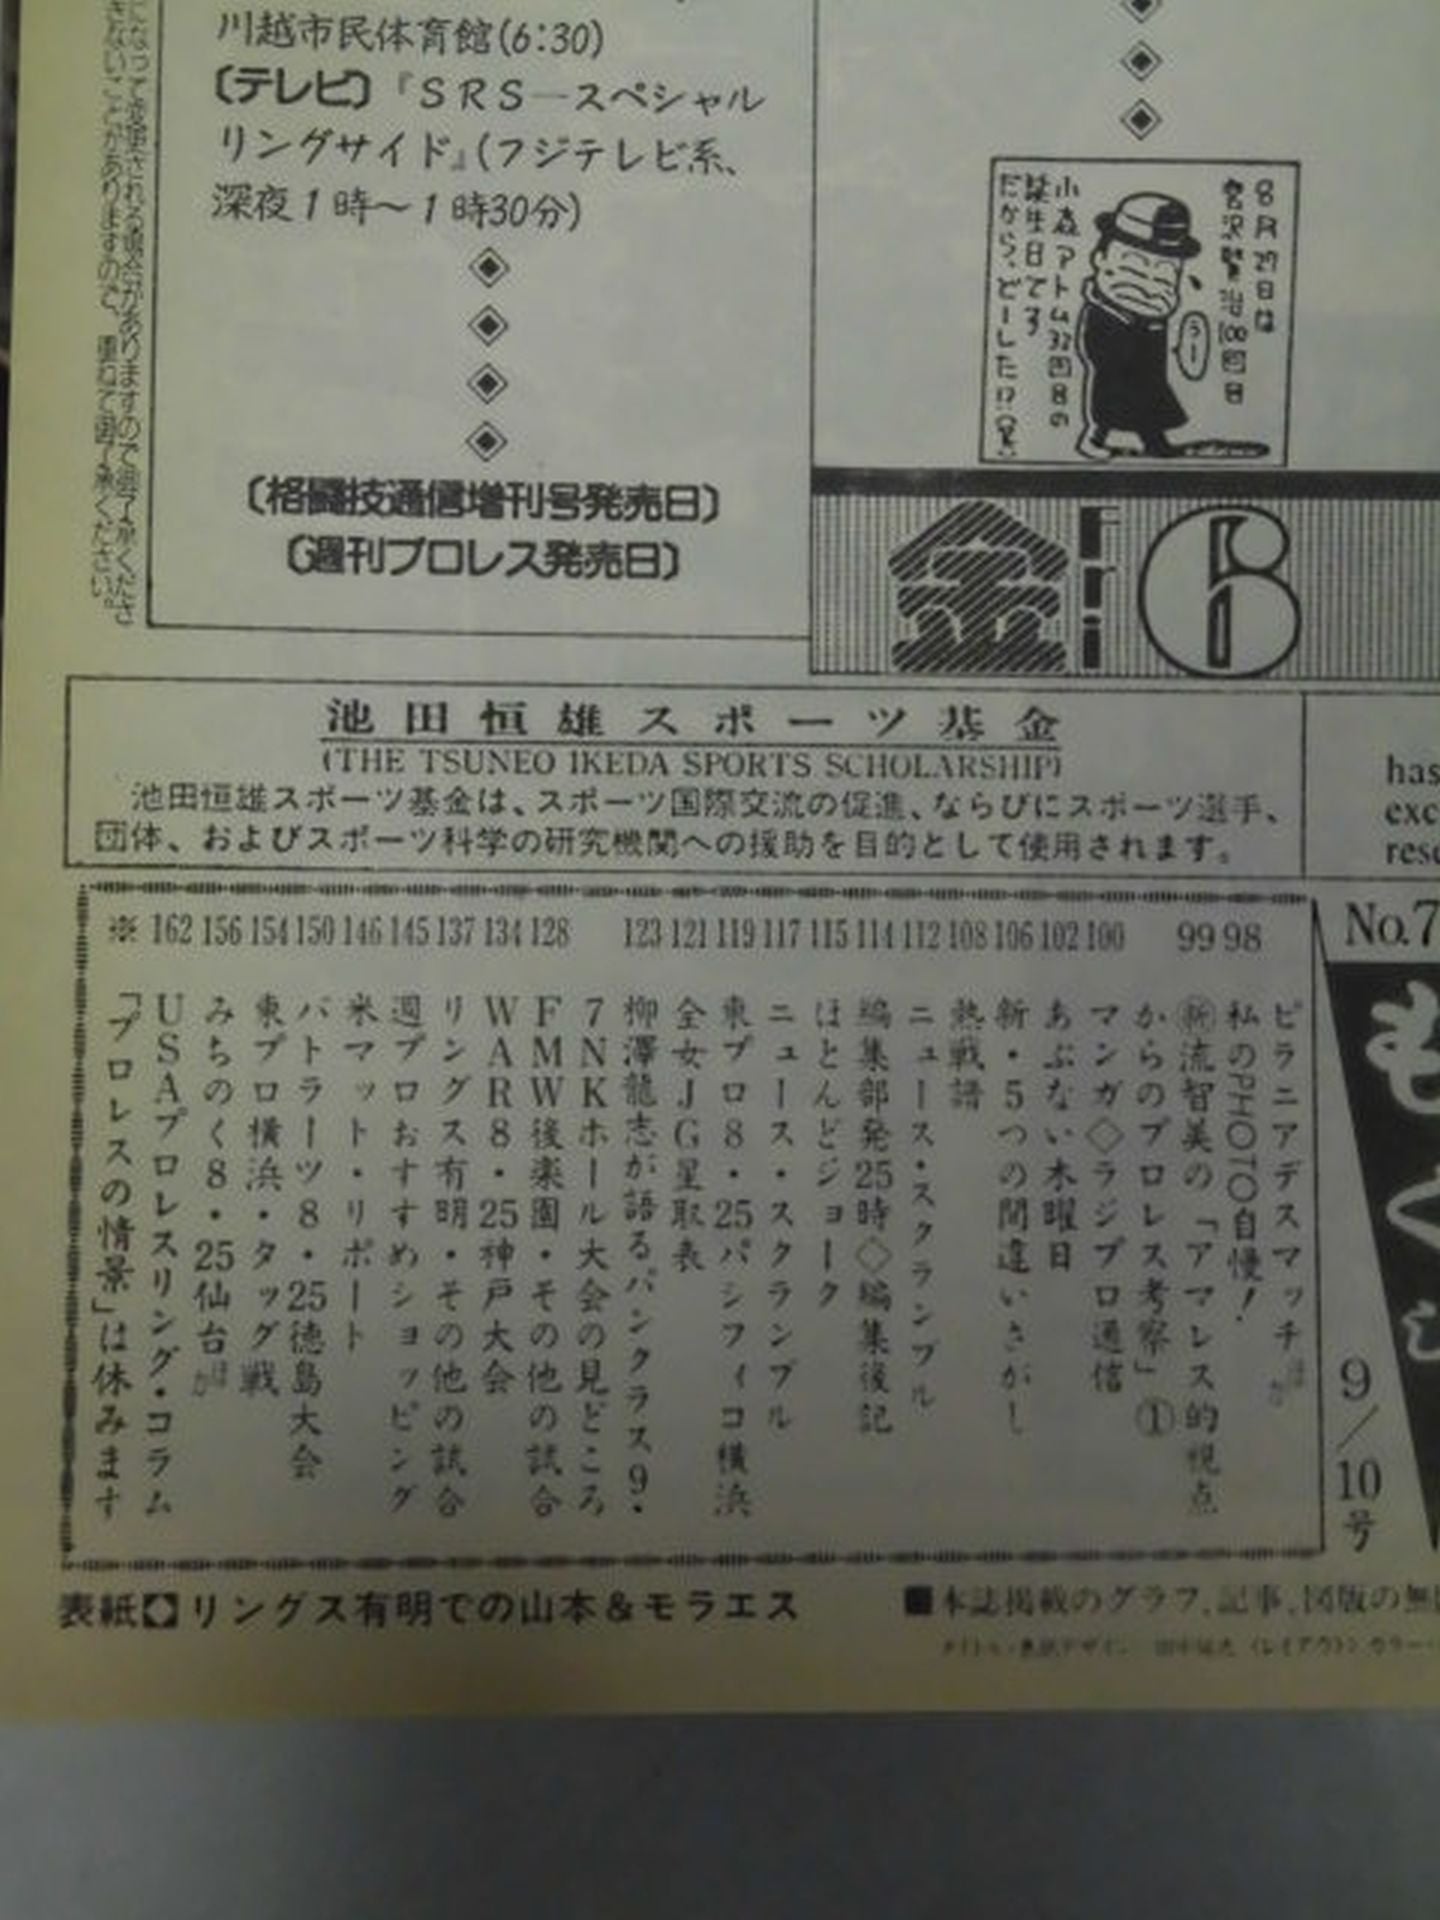 川越市民体育館(6:30)
〔テレビ〕『SRS―スペシャル
リングサイド』(フジテレビ系、
深夜1時～1時30分)
〔格闘技通信増刊号発売日〕
〔週刊プロレス発売日〕
になって変更される場合がありますのでご了承くださ
きないことがありますので、重ねてご了承ください。
8月27日は
宮沢賢治100回目
小森アトム32回目の
誕生日です
だから、どーした!?
うー
金 Fri 6
池田恒雄スポーツ基金
(THE TSUNEO IKEDA SPORTS SCHOLARSHIP)
池田恒雄スポーツ基金は、スポーツ国際交流の促進、ならびにスポーツ選手、
団体、およびスポーツ科学の研究機関への援助を目的として使用されます。
has
exc
No.7
もく
9/10号
ピラニアデスマッチほか
98 私のPHOTO自慢!
99 ㊟流智美の「アマレス的視点
からのプロレス考察」①
100 マンガ◇ラジプロ通信
102 あぶない木曜日
106 新・5つの間違いさがし
108 熱戦譜
112 ニュース・スクランブル
114 編集部発25時◇編集後記
115 ほとんどジョーク
117 ニュース・スクランブル
119 東プロ8・25パシフィコ横浜
121 全女JG星取表
123 柳澤龍志が語るパンクラス9・
7NKホール大会の見どころ
128 FMW後楽園・その他の試合
134 WAR8・25神戸大会
137 リングス有明・その他の試合
145 週プロおすすめショッピング
146 米マット・リポート
150 バトラーツ8・25徳島大会
154 東プロ横浜・タッグ戦
156 みちのく8・25仙台ほか
162 USAプロレスリング・コラム
※「プロレスの情景」は休みます
表紙◆リングス有明での山本&モラエス
■本誌掲載のグラフ、記事、図版の無
タイトル・表紙デザイン